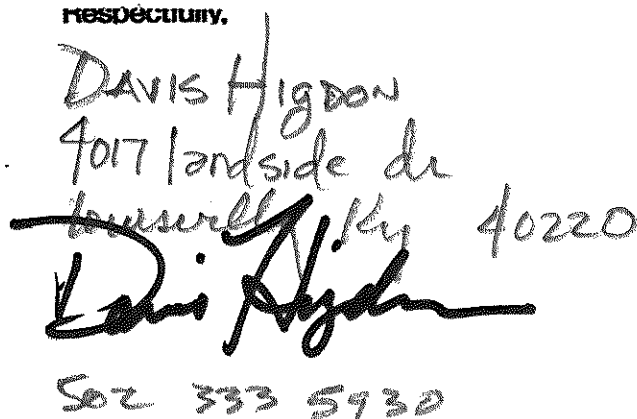 Respectfully,
DAVIS HIGDON
4017 landside dr
louisville Ky 40220
Davis Higdon
502 333 5930